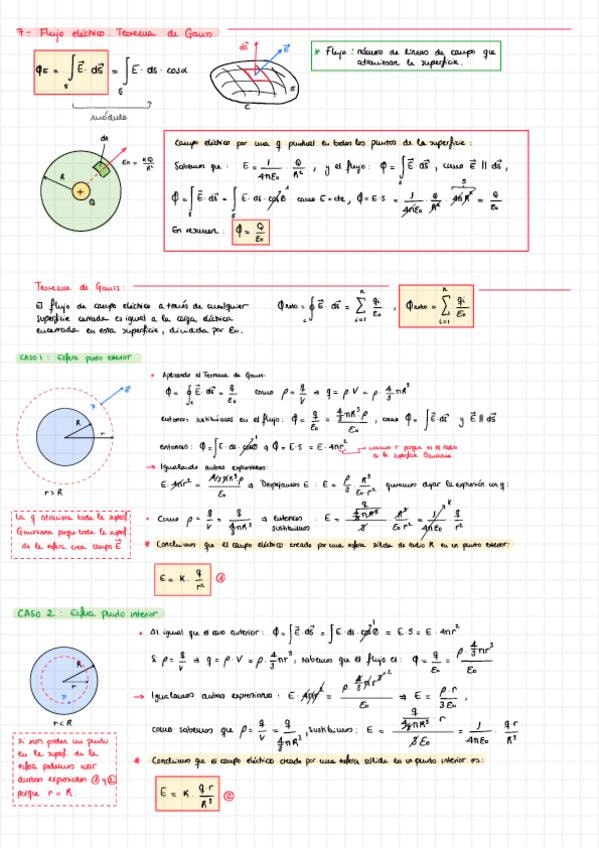 7.- Flujo eléctrico. Teorema de Gauss
ΦE = ∫s E⃗ · ds⃗ = ∫s E · ds · cosα
módulo
ds⃗
E⃗
S
C
* Flujo: número de líneas de campo que
atraviesan la superficie.
ds
R
Q
En = KQ/R²
Campo eléctrico por una q puntual en todos los puntos de la superficie:
Sabemos que: E = 1/4πε₀ · Q/R², y el flujo: Φ = ∫s E⃗ · ds⃗, como E⃗ ∥ ds⃗,
Φ = ∫s E⃗ · ds⃗ = ∫s E · ds · cos0 ¹ como E = cte, Φ = E·S = 1/4πε₀ · Q/R² · 4πR² = Q/ε₀
En resumen: Φ = Q/ε₀
Teorema de Gauss:
El flujo de campo eléctrico a través de cualquier
superficie cerrada es igual a la carga eléctrica
encerrada en esta superficie, dividida por ε₀.
Φneto = ∮s E⃗ · ds⃗ = Σ qi/ε₀ , Φneto = Σ qi/ε₀
CASO 1: Esfera punto exterior
E⃗
R
r
r > R
• Aplicando el Teorema de Gauss:
Φ = ∮s E⃗ · ds⃗ = q/ε₀ como ρ = q/V → q = ρ·V = ρ · 4/3 πR³
entonces sustituimos en el flujo: Φ = q/ε₀ = 4/3 πR³ρ / ε₀, como Φ = ∫ E⃗ · ds⃗ y E⃗ ∥ ds⃗
entonces: Φ = ∫ E · ds · cos0 ¹ → Φ = E·S = E · 4πr²
usamos r porque es el radio
de la superficie Gaussiana.
→ Igualando ambas expresiones:
E · 4πr² = 4/3 πR³ρ / ε₀ → Despejamos E: E = ρ/3 · R³/ε₀·r² queremos dejar la expresión en q:
La q atraviesa toda la superf.
Gaussiana porque toda la superf
de la esfera crea campo E⃗
• Como ρ = q/V = q / 4/3 πR³ → entonces sustituimos E = q / 4/3 πR³ / 3 · R³/ε₀ r² = 1/4πε₀ · q/r²
* Concluimos que el campo eléctrico creado por una esfera sólida de radio R en un punto exterior:
E = K · q/r² ①
CASO 2: Esfera punto interior
R
r
r < R
• Al igual que el caso anterior: Φ = ∫ E⃗ · ds⃗ = ∫ E · ds · cos0 ¹ = E·S = E · 4πr²
Si ρ = q/V → q = ρ·V = ρ · 4/3 πr³, sabemos que el flujo es: Φ = q/ε₀ = ρ · 4/3 πr³ / ε₀
→ Igualamos ambas expresiones: E · 4πr² = ρ · 4/3 πr³ / ε₀ → E = ρ·r / 3ε₀,
como sabemos que ρ = q/V = q / 4/3 πR³, sustituimos: E = q / 4/3 πR³ · r / 3ε₀ = 1/4πε₀ · q r/R³
Si nos piden un punto
en la superf. de la
esfera podemos usar
ambas expresiones ① y ②
porque r = R.
* Concluimos que el campo eléctrico creado por una esfera sólida en un punto interior es:
E = K · q·r/R³ ②